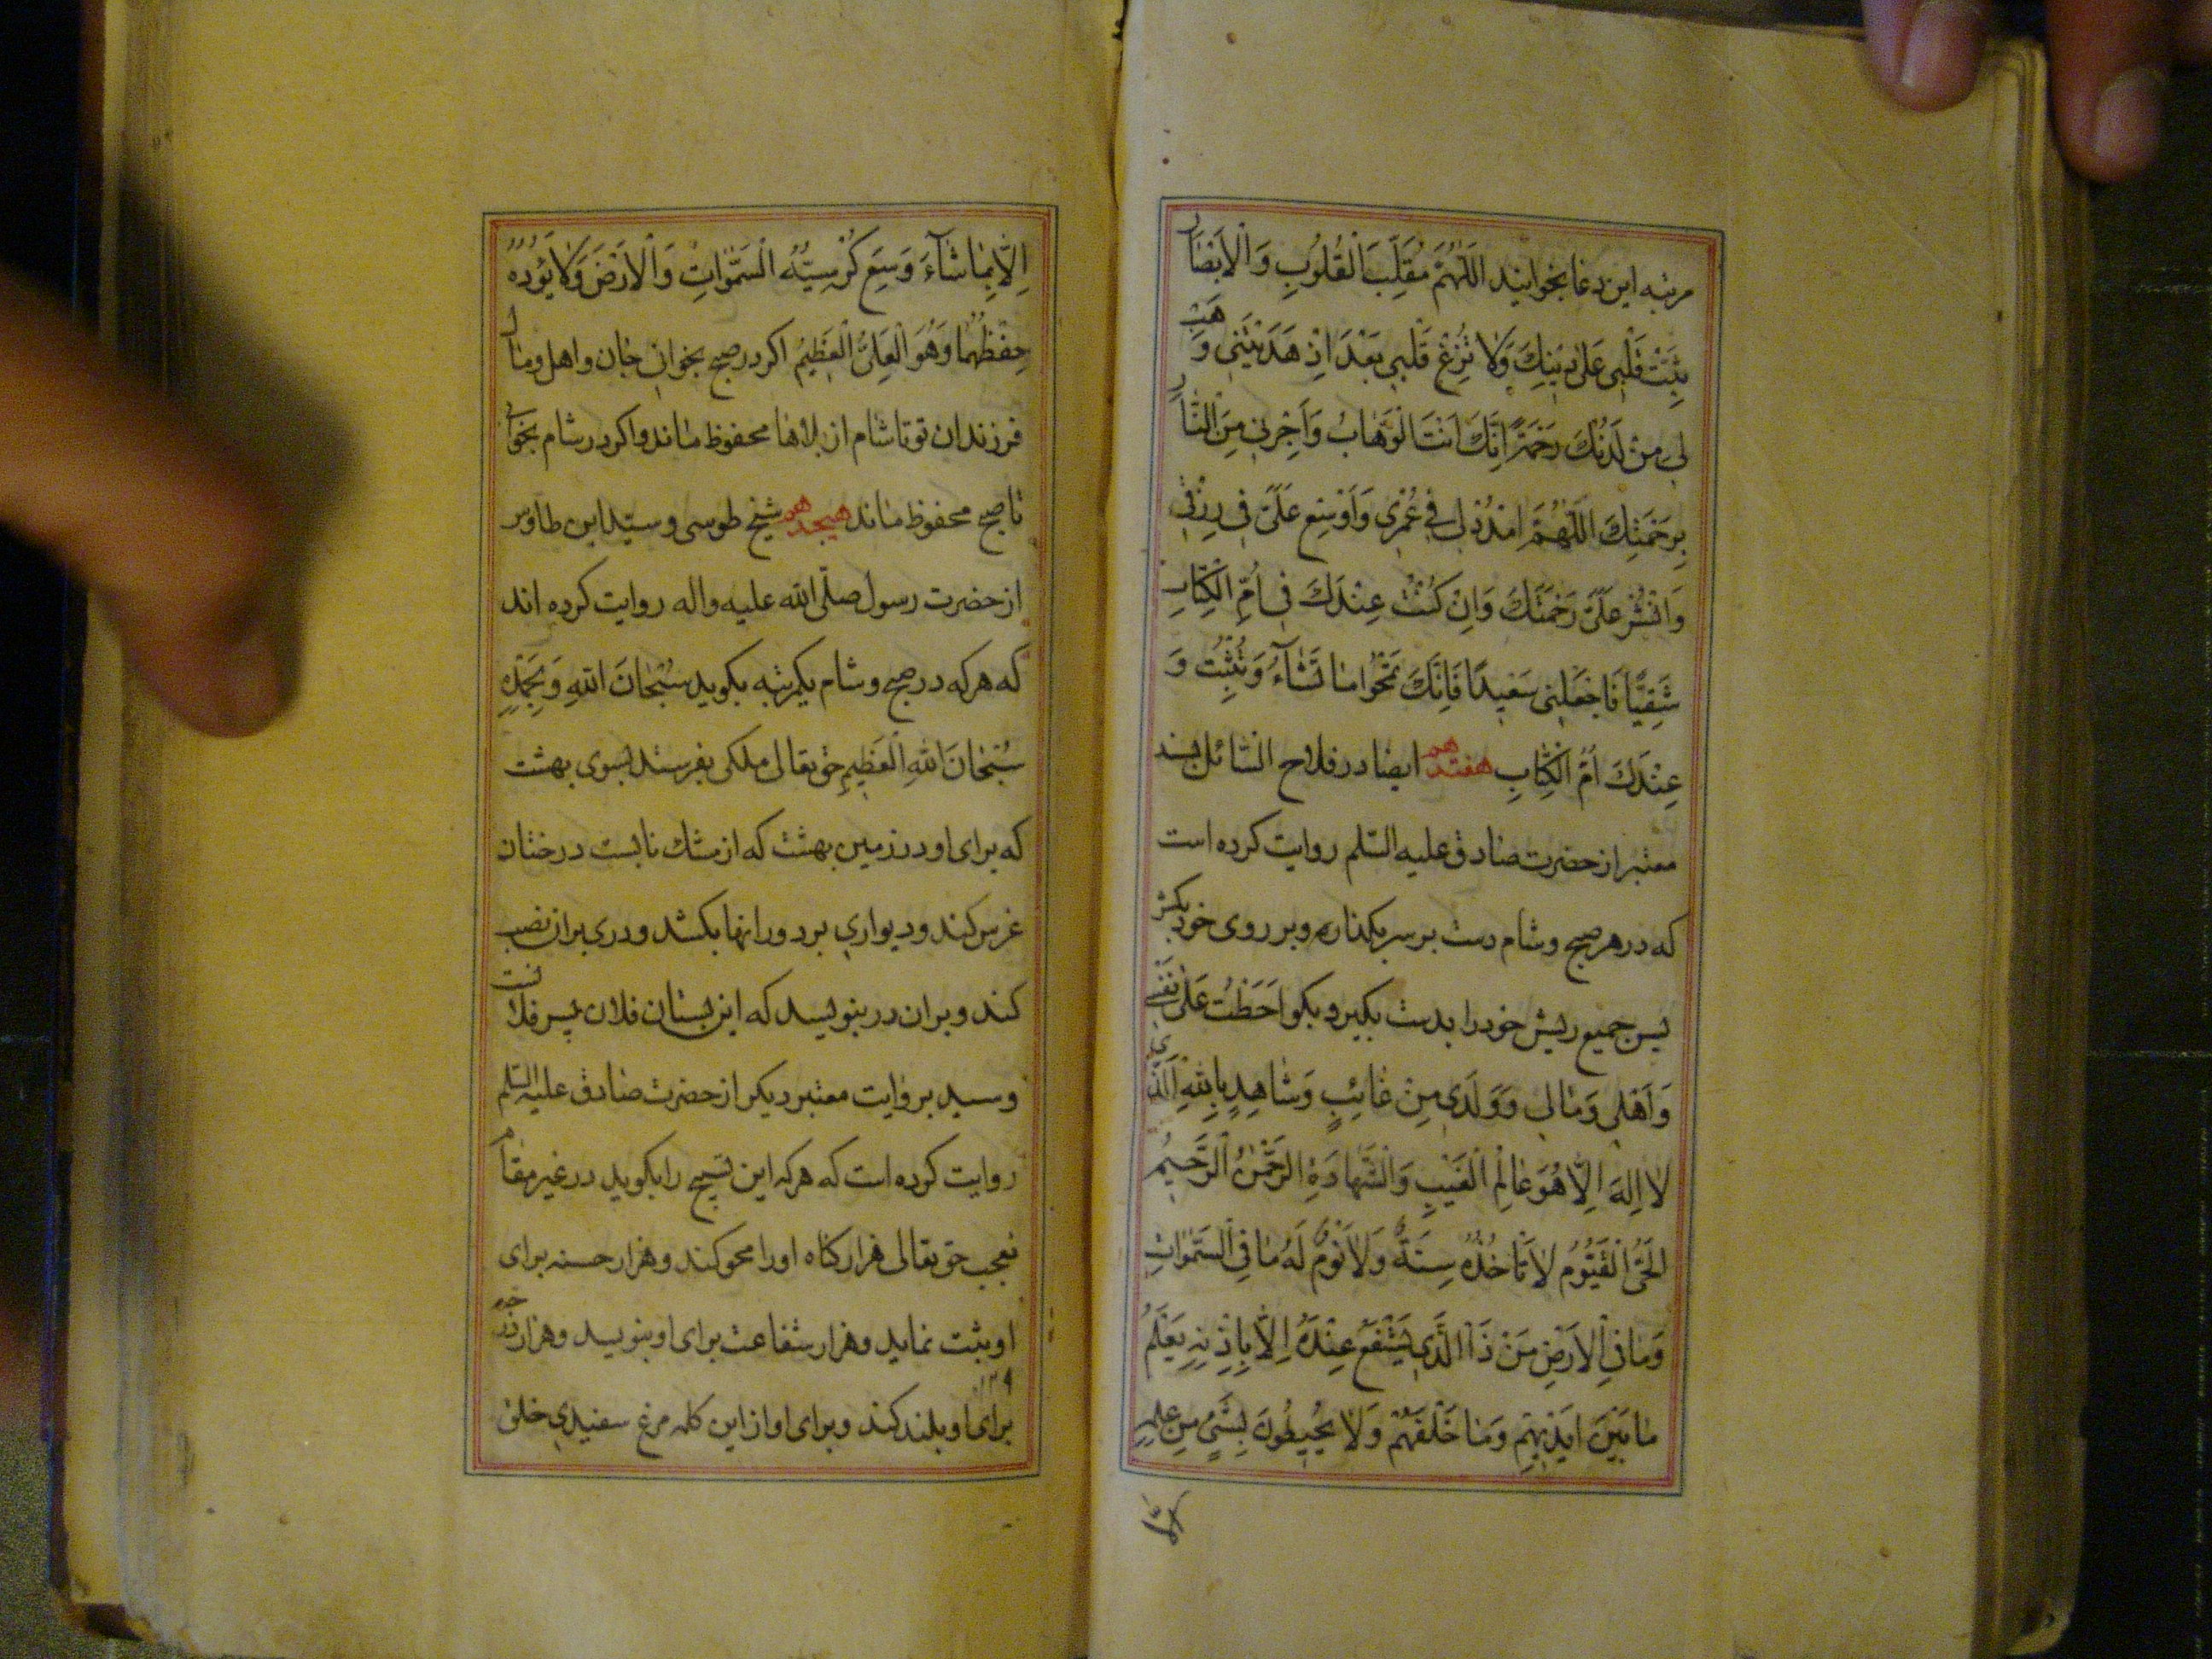 مرتبه این دعا بخوانید اَللّٰهُمَّ مُقَلِّبَ الْقُلُوبِ وَ الْاَبْصٰارِ
ثَبِّتْ قَلْبِی عَلیٰ دینِكَ وَلٰا تُزِغْ قَلْبِی بَعْدَ اِذْ هَدَیْتَنِی وَ هَبْ
لِی مِنْ لَدُنْكَ رَحْمَةً اِنَّكَ اَنْتَ الْوَهّٰابُ وَ اَجِرْنِی مِنَ النّٰارِ
بِرَحْمَتِكَ اَللّٰهُمَّ امْدُدْ لِی فِی عُمْرِی وَ اَوْسِعْ عَلَیَّ فِی رِزْقِی
وَ انْشُرْ عَلَیَّ رَحْمَتَكَ وَ اِنْ كُنْتُ عِنْدَكَ فِی اُمِّ الْكِتٰابِ
شَقِیًّا فَاجْعَلْنِی سَعِیدًا فَاِنَّكَ تَمْحُوا مٰا تَشٰآءُ وَ تُثْبِتُ وَ
عِنْدَكَ اُمُّ الْكِتٰابِ هفتدهم ایضا در فلاح السّائل بسند
معتبر از حضرت صادق علیه السّلم روایت کرده است
که در هر صبح و شام دست بر سر بگذار و بر روی خود بکش
پس جمیع ریش خود را بدست بگیر و بگو اَحَطْتُ عَلیٰ نَفْسِی
وَ اَهْلِی وَ مٰالِی وَ وَلَدِی مِنْ غٰائِبٍ وَ شٰاهِدٍ بِاللّٰهِ الَّذِی
لٰا اِلٰهَ اِلّٰا هُوَ عٰالِمُ الْغَیْبِ وَ الشَّهٰادَةِ الرَّحْمٰنُ الرَّحِیمُ
الْحَیُّ الْقَیُّومُ لٰا تَاْخُذُهُ سِنَةٌ وَ لٰا نَوْمٌ لَهُ مٰا فِی السَّمٰوٰاتِ
وَ مٰا فِی الْاَرْضِ مَنْ ذَا الَّذِی یَشْفَعُ عِنْدَهُ اِلّٰا بِاِذْنِهِ یَعْلَمُ
مٰا بَیْنَ اَیْدِیهِمْ وَ مٰا خَلْفَهُمْ وَ لٰا یُحِیطُونَ بِشَیْءٍ مِنْ عِلْمِهِ
اِلّٰا بِمٰا شٰآءَ وَسِعَ كُرْسِیُّهُ السَّمٰوٰاتِ وَ الْاَرْضَ وَ لٰا یَؤُدُهُ
حِفْظُهُمٰا وَ هُوَ الْعَلِیُّ الْعَظِیمُ اگر در صبح بخوانی جان و اهل و مال
فرزندان تو تا شام از بلاها محفوظ ماند و اگر در شام بخوانی
تا صبح محفوظ ماند هیجدهم شیخ طوسی و سیّد ابن طاوس
از حضرت رسول صلّی اللّه علیه و اله روایت کرده اند
که هر که در صبح و شام یکمرتبه بگوید سُبْحٰانَ اللّٰهِ وَ بِحَمْدِهِ
سُبْحٰانَ اللّٰهِ الْعَظِیمِ حق تعالی ملکی بفرستد بسوی بهشت
که برای او در زمین بهشت که از مشك نابست درختان
غرس کند و دیواری بر دور انها بکشد و دری بر ان نصب
کند و بر ان در بنویسد که این بستان فلان پسر فلانست
و سید بروایت معتبر دیگر از حضرت صادق علیه السّلم
روایت کرده است که هر که این تسبیح را بگوید در غیر مقام
تعجب حق تعالی هزار گناه او را محو کند و هزار حسنه برای
او ثبت نماید و هزار شفاعت برای او بنویسد و هزار درجه
برای او بلند کند و برای او از این کلمه مرغ سفیدی خلق